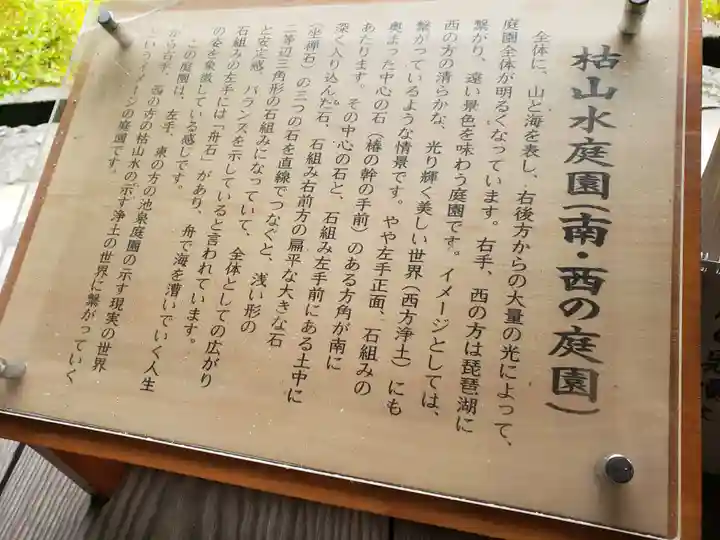 枯山水庭園(南・西の庭園)
全体に、山と海を表し、右後方からの大量の光によって、
庭園全体が明るくなっています。右手、西の方は琵琶湖に
繋がり、遠い景色を味わう庭園です。イメージとしては、
西の方の清らかな、光り輝く美しい世界(西方浄土)にも
繋がっているような情景です。やや左手正面、石組みの
奥まった中心の石(椿の幹の手前)のある方角が南に
あたります。その中心の石と、石組み左手前にある土中に
深く入り込んだ石、石組み右前方の扁平な大きな石
(坐禅石)の三つの石を直線でつなぐと、浅い形の
二等辺三角形の石組みになっていて、全体としての広がり
と安定感、バランスを示していると言われています。
石組みの左手には「舟石」があり、舟で海を漕いでいく人生
の姿を象徴している感じです。
この庭園は、左手、東の方の池泉庭園の示す現実の世界
から右手、西の方の枯山水の示す浄土の世界に繋がっていく
というイメージの庭園です。